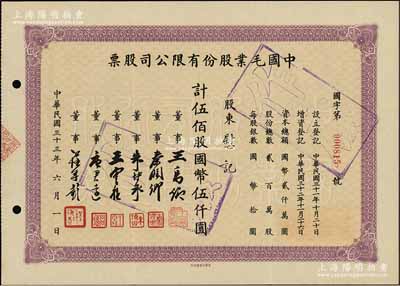 上海陽明拍賣
中國毛業股份有限公司股票
國字第000815號
設立登記 中華民國三十一年十月二十日
增資登記 中華民國三十二年十一月二十六日
資本總額 國幣貳仟萬圓
股份總數 貳百萬股
每股銀數 國幣拾圓
股東 慰記
計伍佰股國幣伍仟圓
董事
董事
董事
董事
董事
中華民國三十三年六月一日
上海陽明拍賣